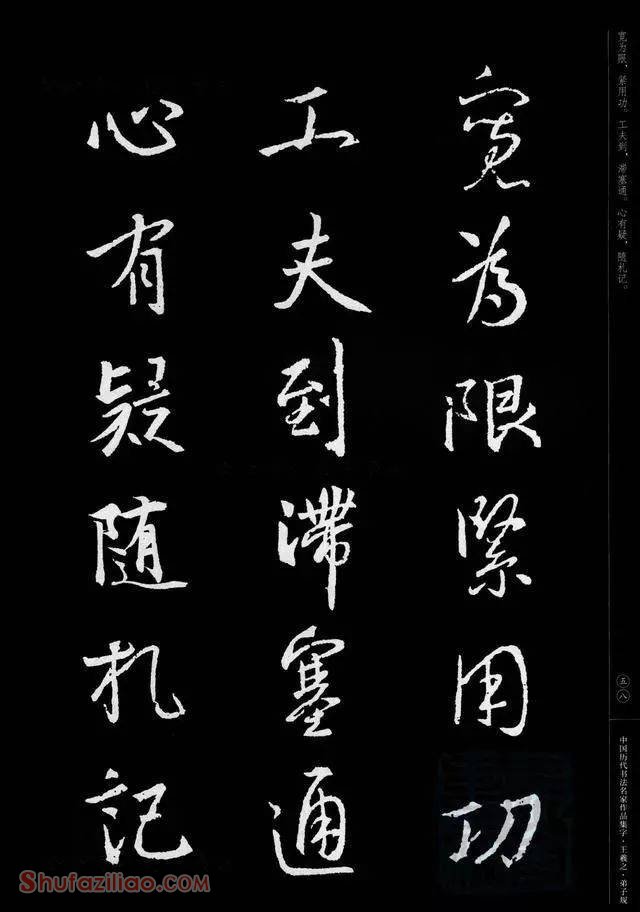 寬為限緊用功
工夫到滯塞通
心有疑随札記
宽为限，紧用功。工夫到，滞塞通。心有疑，随札记。
五八
中国历代书法名家作品集字·王羲之·弟子规
Shufaziliao.com